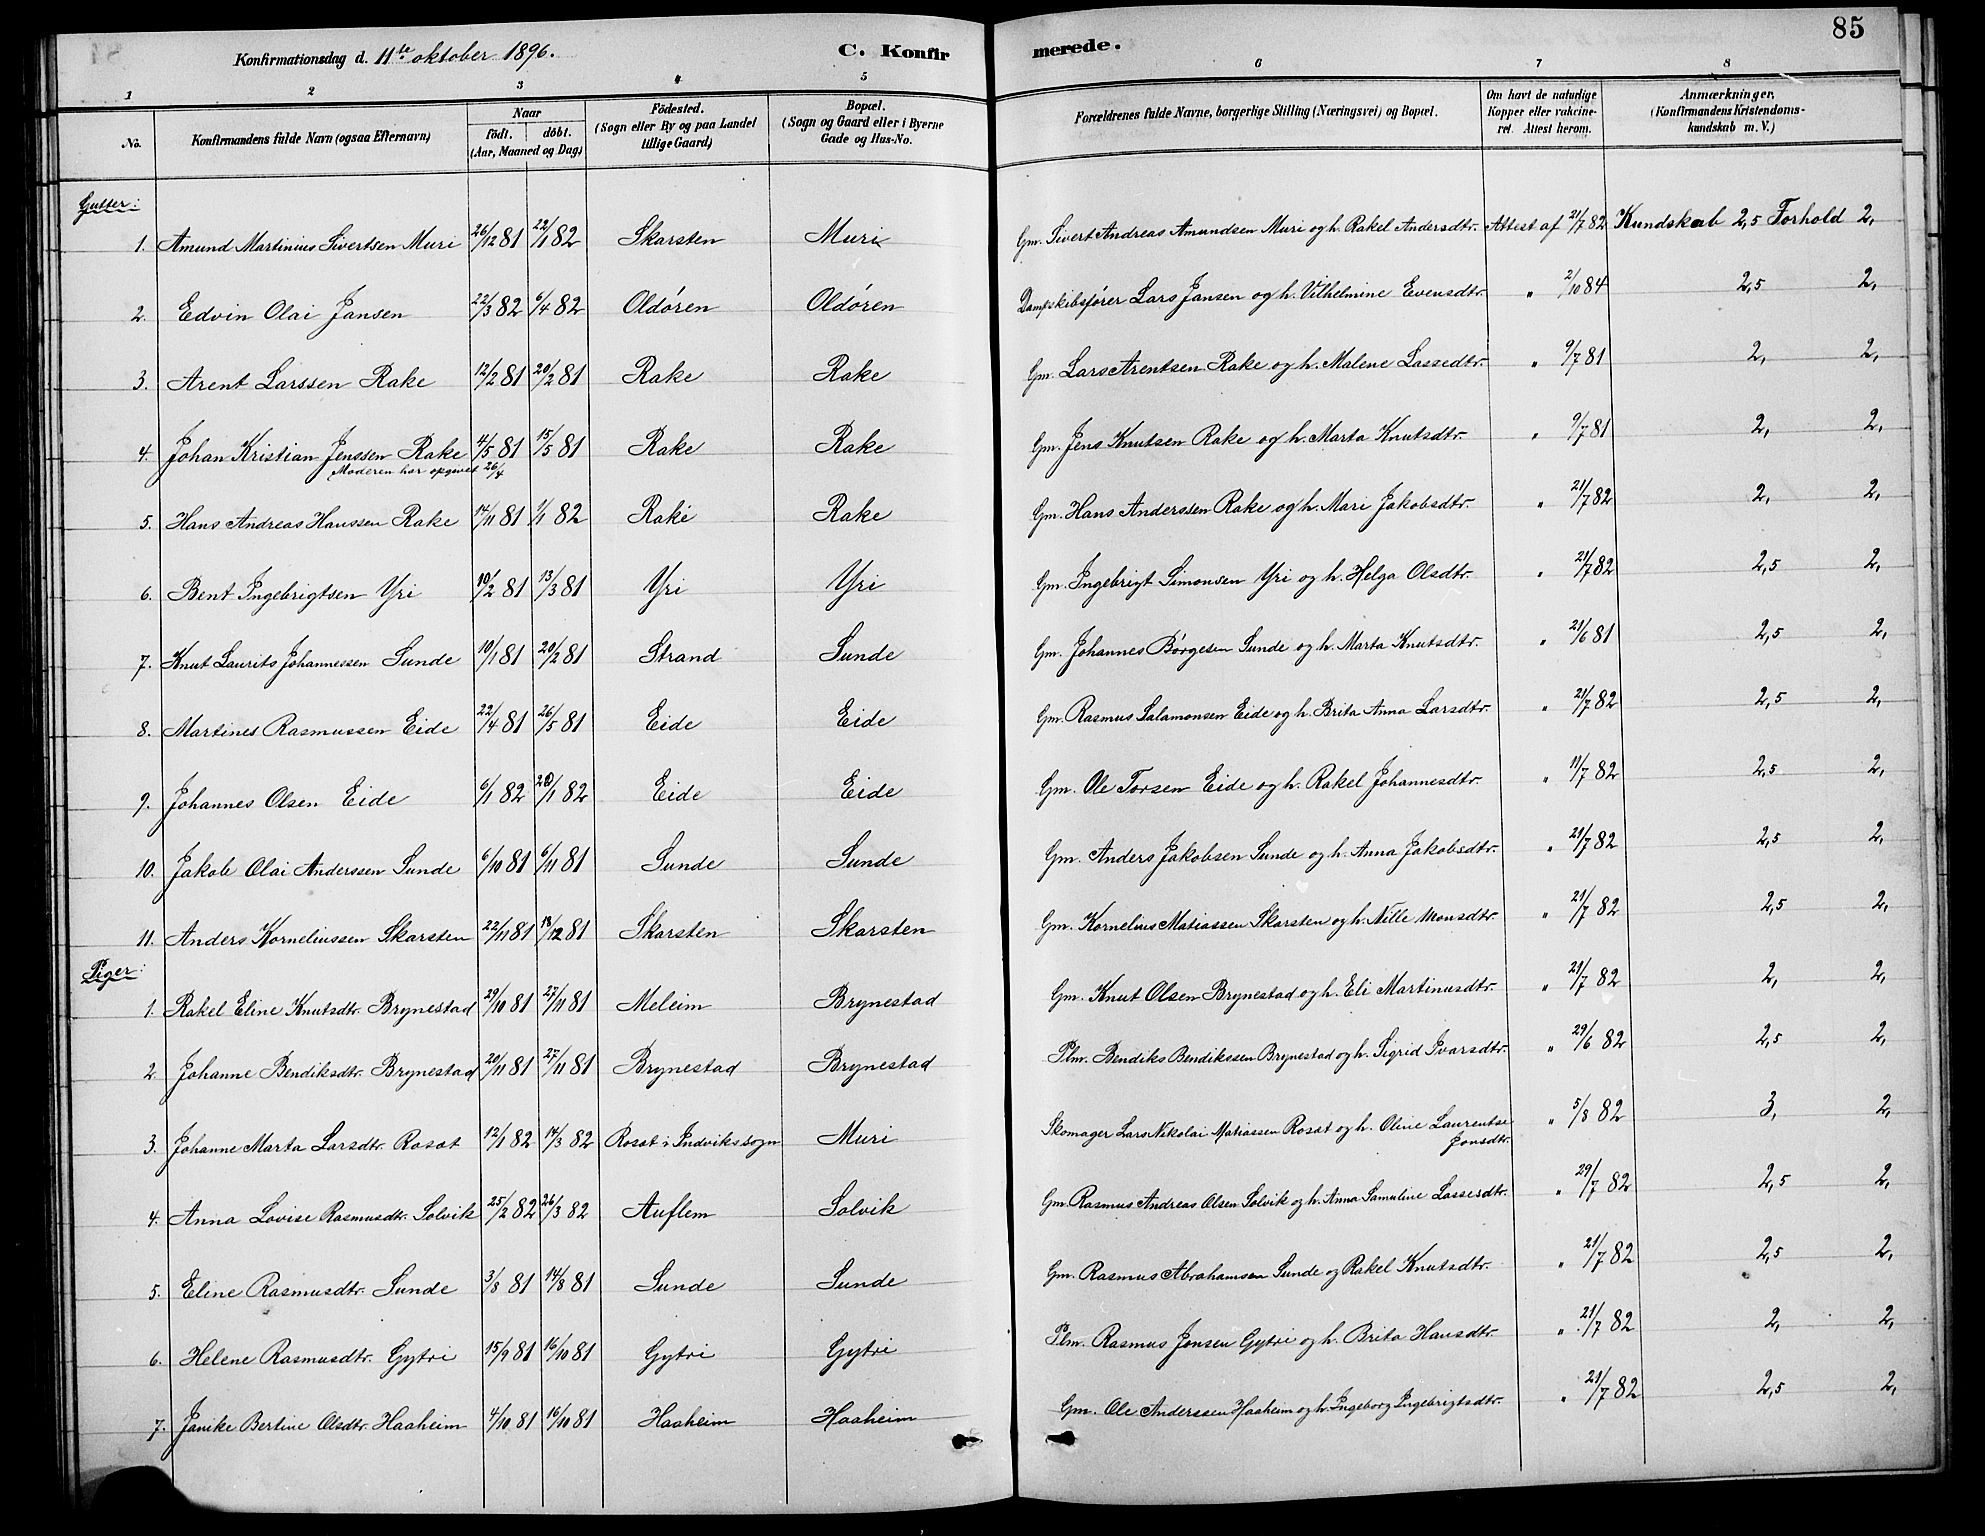 85
Konfirmationsdag d. 11te oktober 1896.
C. Konfirmerede.
1 2 3 4 5 6 7 8
No. Konfirmandens fulde Navn (ogsaa Efternavn) Naar födt. döbt. (Aar, Maaned og Dag) Födested. (Sogn eller By og paa Landet tillige Gaard) Bopæl. (Sogn og Gaard eller i Byerne Gade og Hus-No. Forældrenes fulde Navne, borgerlige Stilling (Næringsvei) og Bopæl. Om havt de naturlige Kopper eller vakcineret. Attest herom. Anmærkninger. (Konfirmandens Kristendomskundskab m. V.)
Gutter:
1. Amund Martinius Sivertsen Muri 26/12 81 22/1 82 Skarsten Muri Gm. Sivert Andreas Amundsen Muri og h. Rakel Andersdtr. Attest af 21/7 82 Kundskab 2,5 Forhold 2,
2. Edvin Olai Jansen 22/3 82 6/4 82 Oldören Oldören Dampskibsfører Lars Jansen og h. Vilhelmine Evensdtr. " 2/10 84 2,5 2,
3. Arent Larssen Rake 12/2 81 20/2 81 Rake Rake Gm. Lars Arentsen Rake og h. Malene Lassedtr. " 9/7 81 2, 2,
4. Johan Kristian Jenssen Rake 4/5 81 15/5 81 Rake Rake Gm. Jens Knutsen Rake og h. Marta Knutsdtr. " 9/7 81 2, 2,
Moderen har opgivet 26/4
5. Hans Andreas Hanssen Rake 14/11 81 1/1 82 Rake Rake Gm. Hans Anderssen Rake og h. Mari Jakobsdtr. " 21/7 82 2, 2,
6. Bent Ingebrigtsen Yri 10/2 81 13/3 81 Yri Yri Gm. Ingebrigt Simonsen Yri og h. Helga Olsdtr. " 21/7 82 2,5 2,
7. Knut Laurits Johannessen Sunde 10/1 81 20/2 81 Strand Sunde Gm. Johannes Börgesen Sunde og h. Marta Knutsdtr. " 21/6 81 2,5 2,
8. Martines Rasmussen Eide 22/4 81 26/5 81 Eide Eide Gm. Rasmus Salamonsen Eide og h. Brita Anna Larsdtr. " 21/7 82 2,5 2,
9. Johannes Olsen Eide 6/1 82 /1 82 Eide Eide Gm. Ole Torsen Eide og h. Rakel Johannesdtr. " 11/7 82 2,5 2,
10. Jakob Olai Anderssen Sunde 6/10 81 6/11 81 Sunde Sunde Gm. Anders Jakobsen Sunde og h. Anna Jakobsdtr. " 21/7 82 2,5 2,
11. Anders Korneliussen Skarsten 22/11 81 18/12 81 Skarsten Skarsten Gm. Kornelius Matiassen Skarsten og h. Nille Monsdtr. " 21/7 82 2,5 2,
Piger:
1. Rakel Eline Knutsdtr. Brynestad 29/10 81 27/11 81 Meleim Brynestad Gm. Knut Olsen Brynestad og h. Eli Martinusdtr. " 21/7 82 2, 2,
2. Johanne Bendiksdtr. Brynestad 20/11 81 27/11 81 Brynestad Brynestad Plm. Bendiks Bendikssen Brynestad og h. Sigrid Ivarsdtr. " 29/6 82 2,5 2,
3. Johanne Marta Larsdtr. Rosæt 12/1 82 14/3 82 Rosæt i Indvikssogn Muri Skomager Lars Nikolai Matiassen Rosæt og h. Oline Laurentse Jonsdtr. " 5/8 82 3, 2,
4. Anna Lovise Rasmusdtr. Solvik 25/2 82 26/3 82 Auflem Solvik Gm. Rasmus Andreas Olsen Solvik og h. Anna Samuline Lassesdtr. " 29/7 82 2,5 2,
5. Eline Rasmusdtr. Sunde 3/8 81 14/8 81 Sunde Sunde Gm. Rasmus Abrahamsen Sunde og Rakel Knutsdtr. " 21/7 82 2,5 2,
6. Helene Rasmusdtr. Gytri 15/9 81 16/10 81 Gytri Gytri Plm. Rasmus Jonsen Gytri og h. Brita Hansdtr. " 21/7 82 2, 2,
7. Janike Bertine Olsdtr. Haaheim 4/10 81 16/10 81 Haaheim Haaheim Gm. Ole Anderssen Haaheim og h. Ingeborg Ingebrigtsdtr. " 21/7 82 2,5 2,